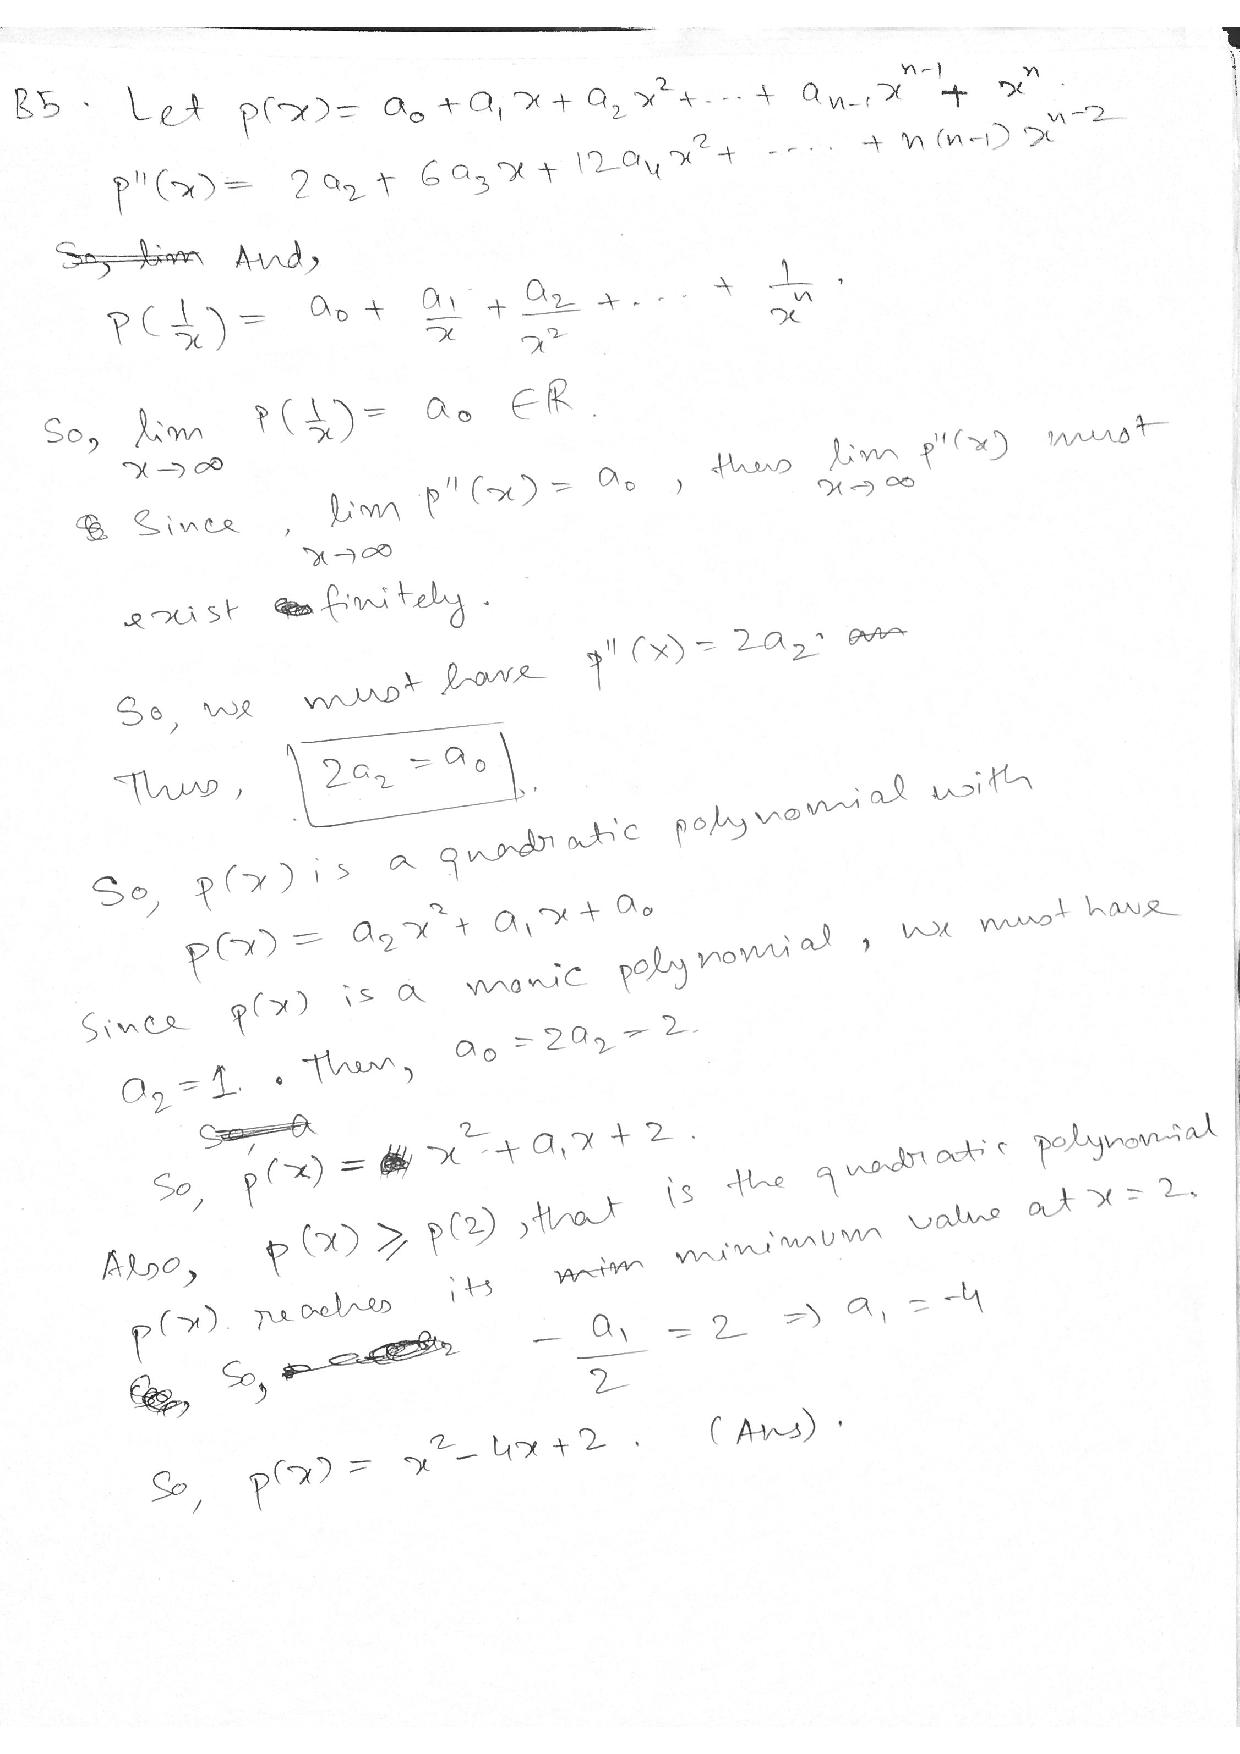 B5. Let p(x) = a₀ + a₁x + a₂x² + ... + aₙ₋₁xⁿ⁻¹ + xⁿ.
p''(x) = 2a₂ + 6a₃x + 12a₄x² + ..... + n(n-1)xⁿ⁻²
So, lim And,
P(1/x) = a₀ + a₁/x + a₂/x² + .... + 1/xⁿ.
So, lim x→∞ P(1/x) = a₀ ∈ ℝ.
Since, lim x→∞ p''(x) = a₀, thus lim x→∞ p''(x) must
exist finitely.
So, we must have p''(x) = 2a₂.
Thus, 2a₂ = a₀.
So, p(x) is a quadratic polynomial with
p(x) = a₂x² + a₁x + a₀
Since p(x) is a monic polynomial, we must have
a₂ = 1. Then, a₀ = 2a₂ = 2.
So, a
So, p(x) = x² + a₁x + 2.
Also, p(x) ≥ p(2), that is the quadratic polynomial
p(x) reaches its minimum value at x = 2.
So, - a₁/2 = 2 ⇒ a₁ = -4
So, p(x) = x² - 4x + 2. (Ans).